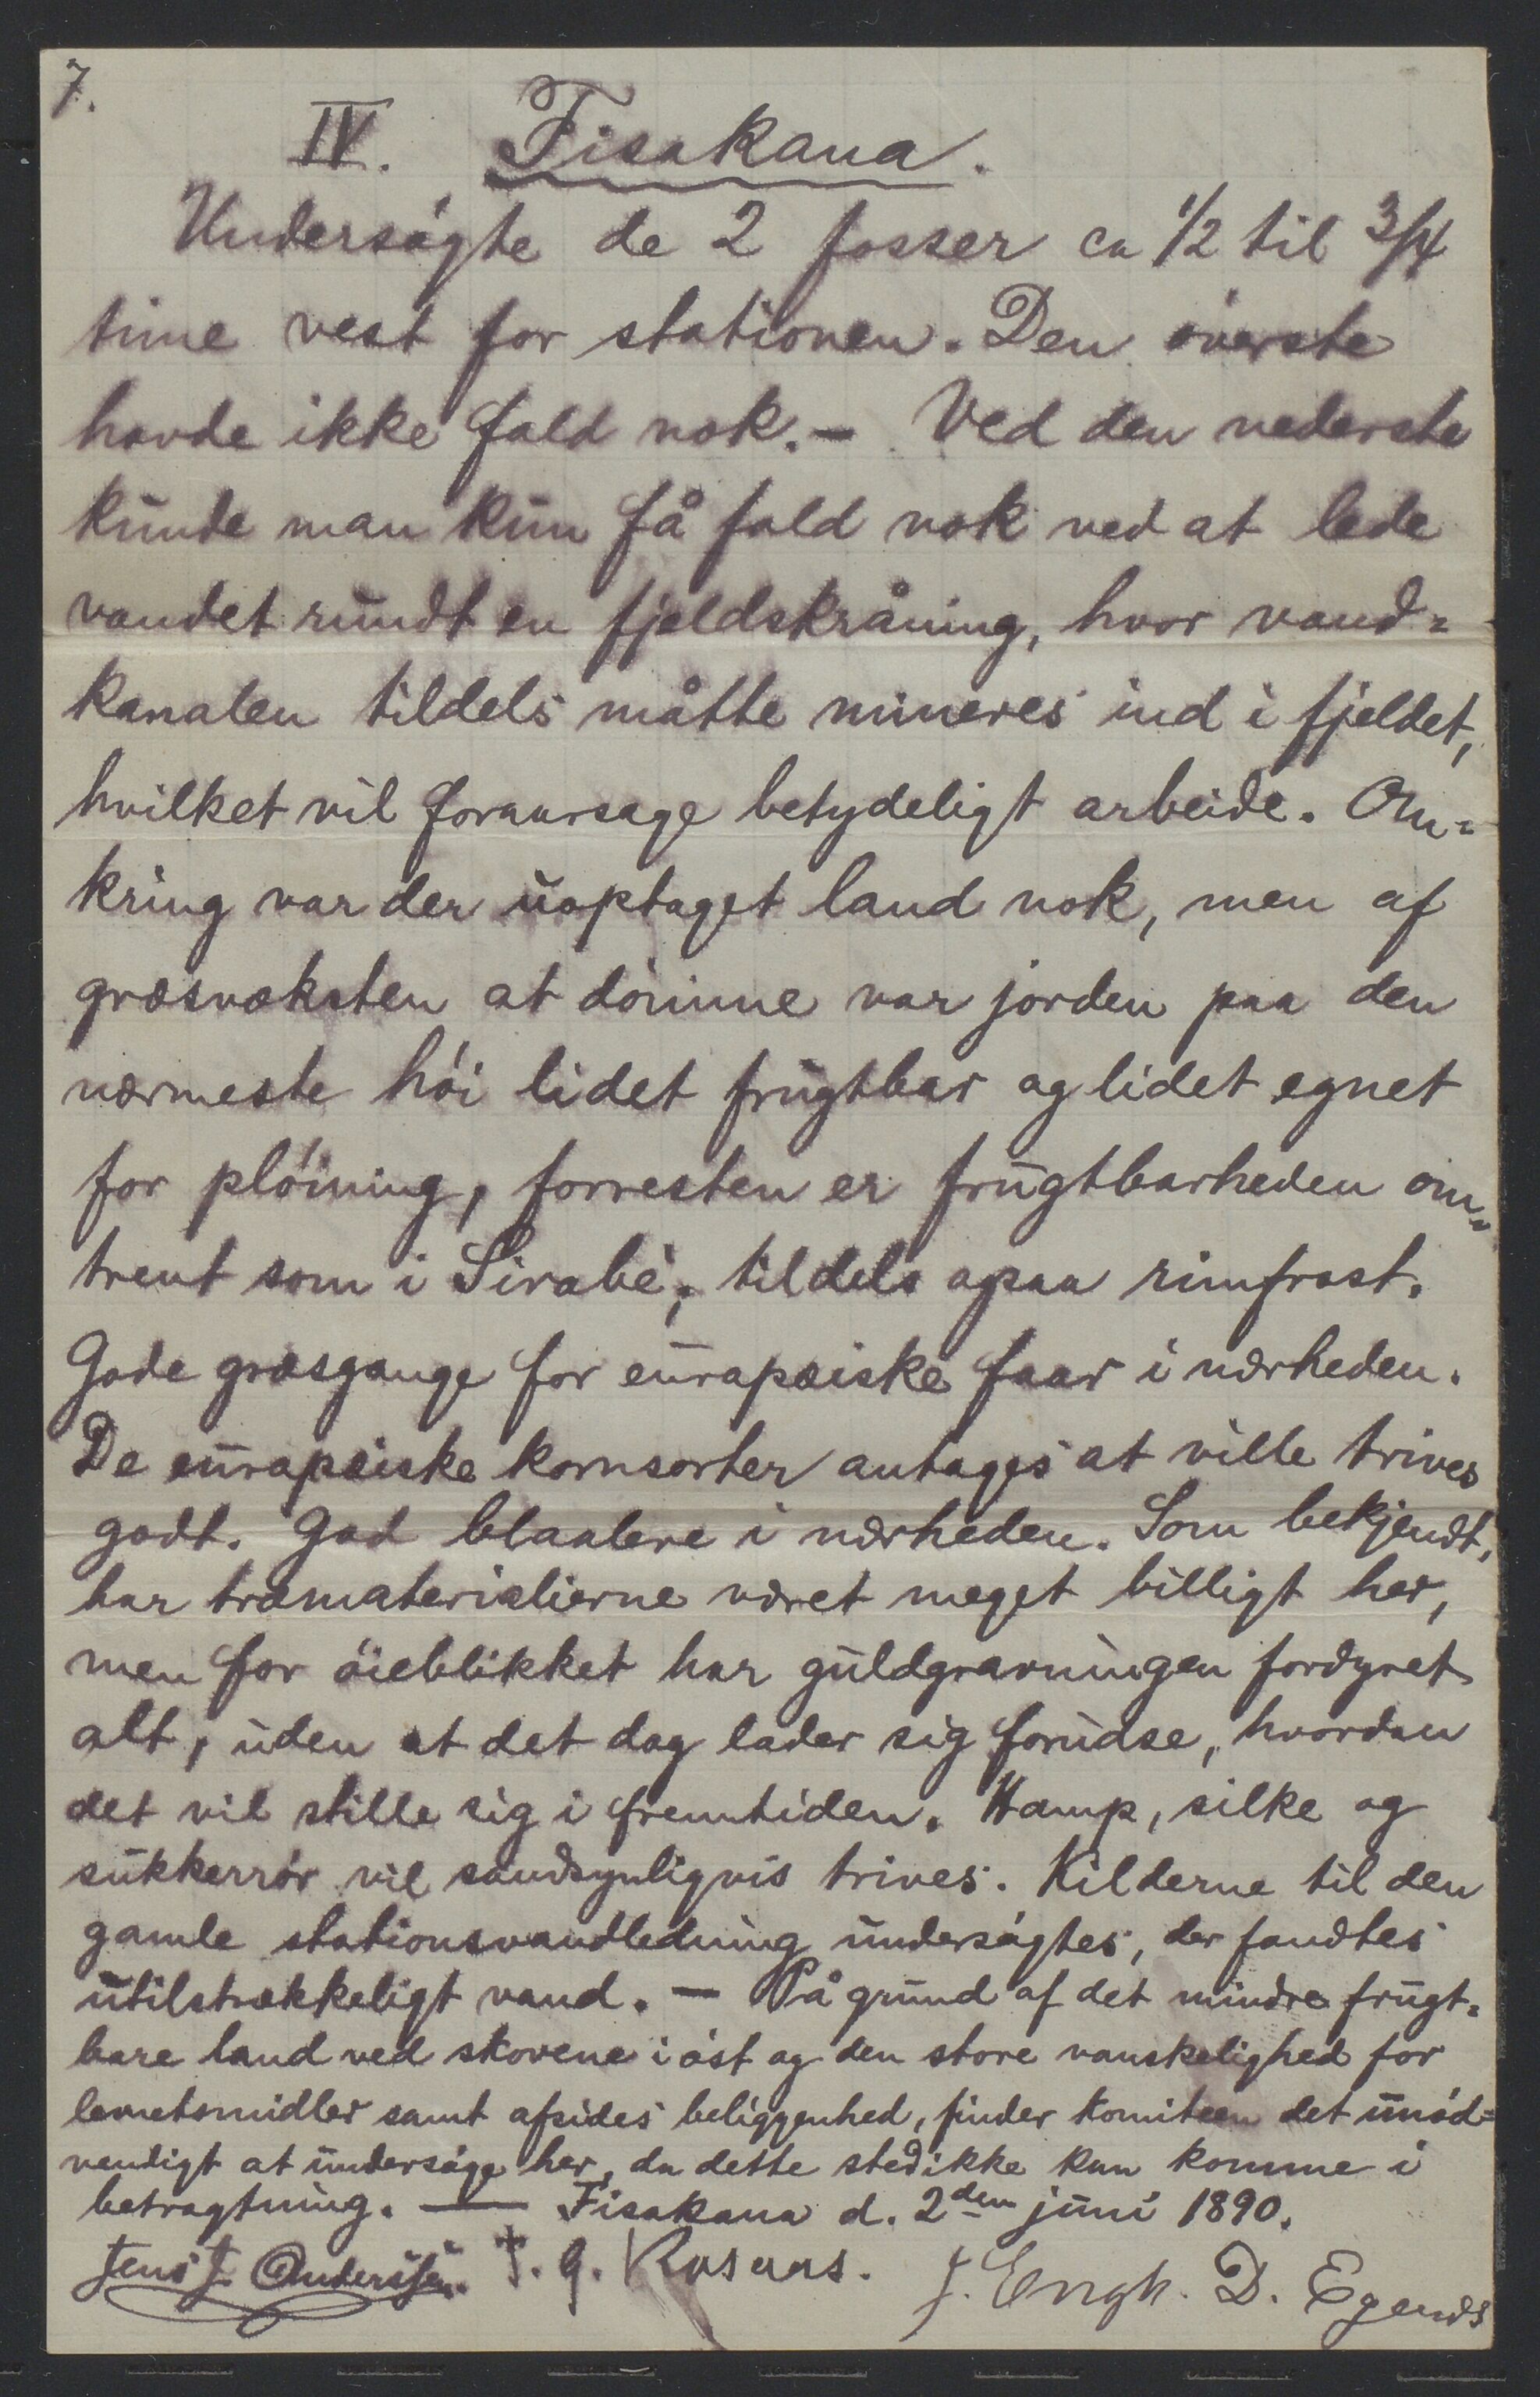 7.
IV. Fisakana.
Undersøgte de 2 fosser ca 1/2 til 3/4
time vest for stationen. Den øverste
havde ikke fald nok. – Ved den nederste
kunde man kun få fald nok ved at lede
vandet rundt en fjeldskråning, hvor vand=
kanalen tildels måtte mineres ind i fjeldet,
hvilket vil foraarsage betydeligt arbeide. Om=
kring var der uoptaget land nok, men af
græsvæksten at dømme var jorden paa den
nærmeste høi lidet frugtbar og lidet egnet
for pløining, forresten er frugtbarheden om=
trent som i Sirabé, tildels ogsaa rimfrost.
Gode græsgange for europæiske faar i nærheden.
De europæiske kornsorter antages at ville trives
godt. God blaalere i nærheden. Som bekjendt,
har træmaterialierne været meget billigt her,
men for øieblikket har guldgravningen fordyret
alt, uden at det dog lader sig forudse, hvordan
det vil stille sig i fremtiden. Hamp, silke og
sukkerrør vil sandsynligvis trives. Kilderne til den
gamle stationsvandledning undersøgtes, der fandtes
utilstrækkeligt vand. – På grund af det mindre frugt=
bare land ved skovene i øst og den store vanskelighed for
levnetsmidler samt afsides beliggenhed, finder komiteen det unød=
vendigt at undersøge her, da dette sted ikke kan komme i
betragtning. — Fisakana d. 2den juni 1890.
Jens J. Anderssen. T. G. Rosaas. J. Engh. D. Egenæs